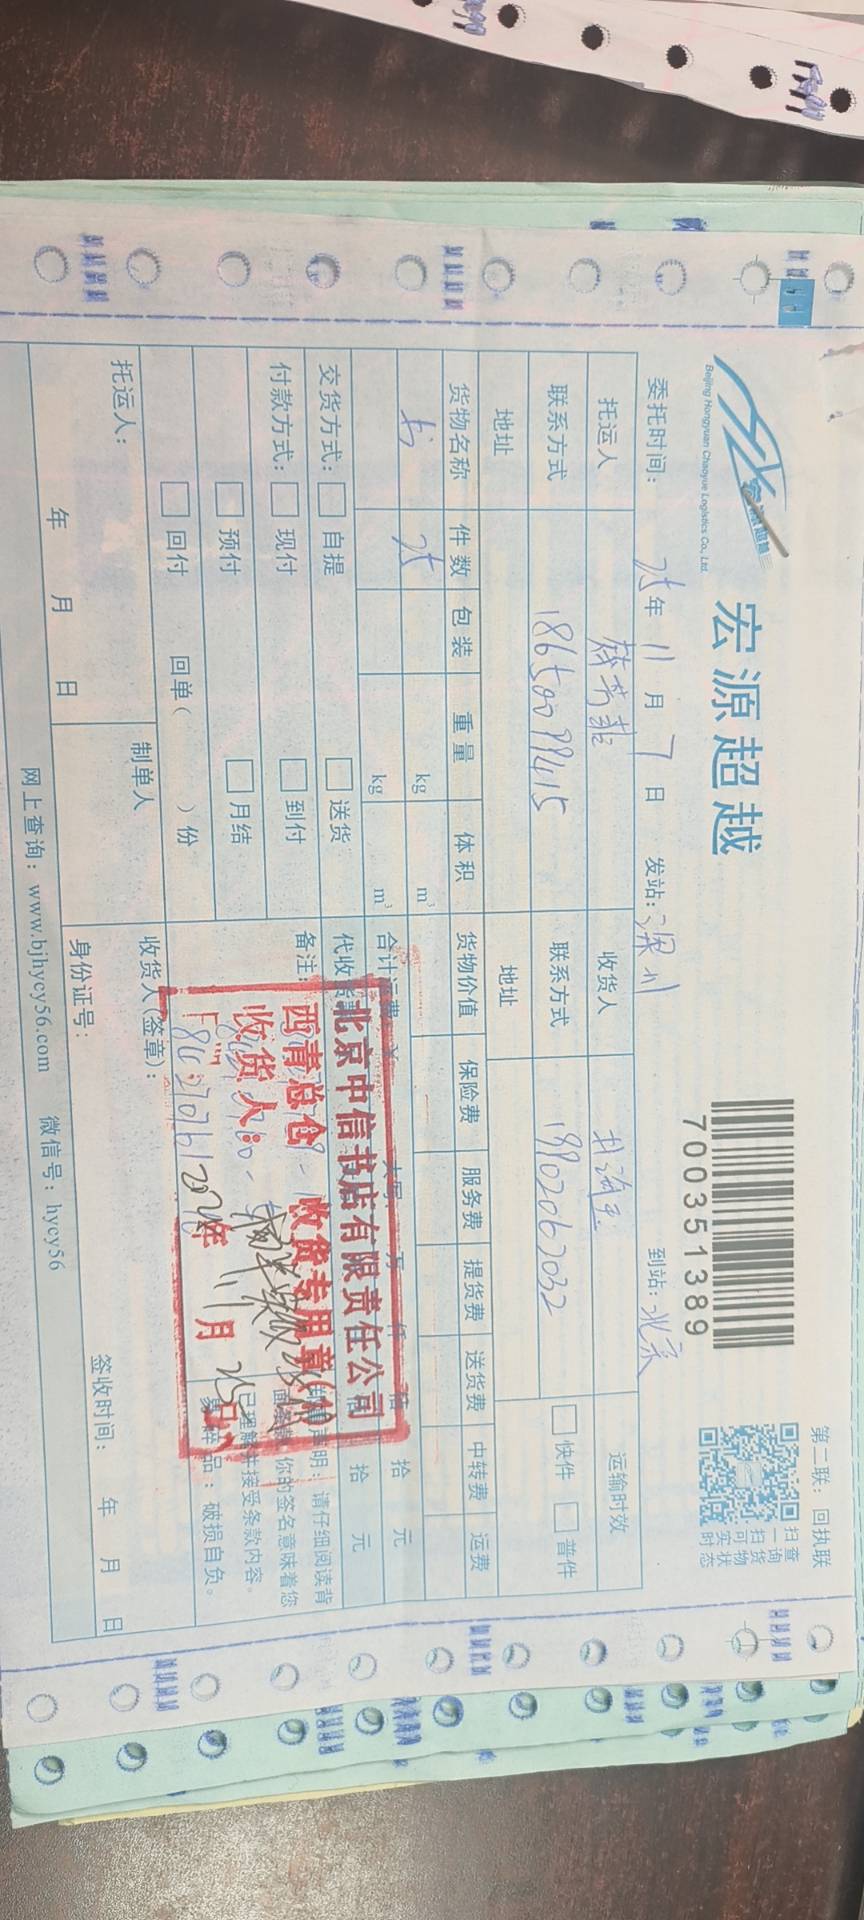 宏源超越
Beijing Hongyuan Chaoyue Logistics Co., Ltd.
宏源超越
700351389
第二联：回执联
扫一扫可实时
查询货物状态
委托时间： 25年 11月 7日 发站：深圳 到站：北京
托运人 收货人 运输时效
联系方式 联系方式 19902062032 快件 普件
地址 地址
货物名称 件数 包装 重量 体积 货物价值 保险费 服务费 提货费 送货费 中转费 运费
书 25 kg m³
kg m³ 合计运费：¥ 万 仟 佰 拾 元
交货方式： 自提 送货 代收货 拾 元
付款方式： 现付 到付 备注：
预付 月结
回付 回单（ ）份
声明：请仔细阅读背
面条款，你的签名意味着您
已理解并接受条款内容。
易碎品：破损自负。
北京中信书店有限责任公司
西青总仓 收货专用章
收货人：
年 11月 日
托运人： 制单人 收货人（签章）：
年 月 日 身份证号： 签收时间： 年 月 日
网上查询：www.bjhycy56.com 微信号：hycy56